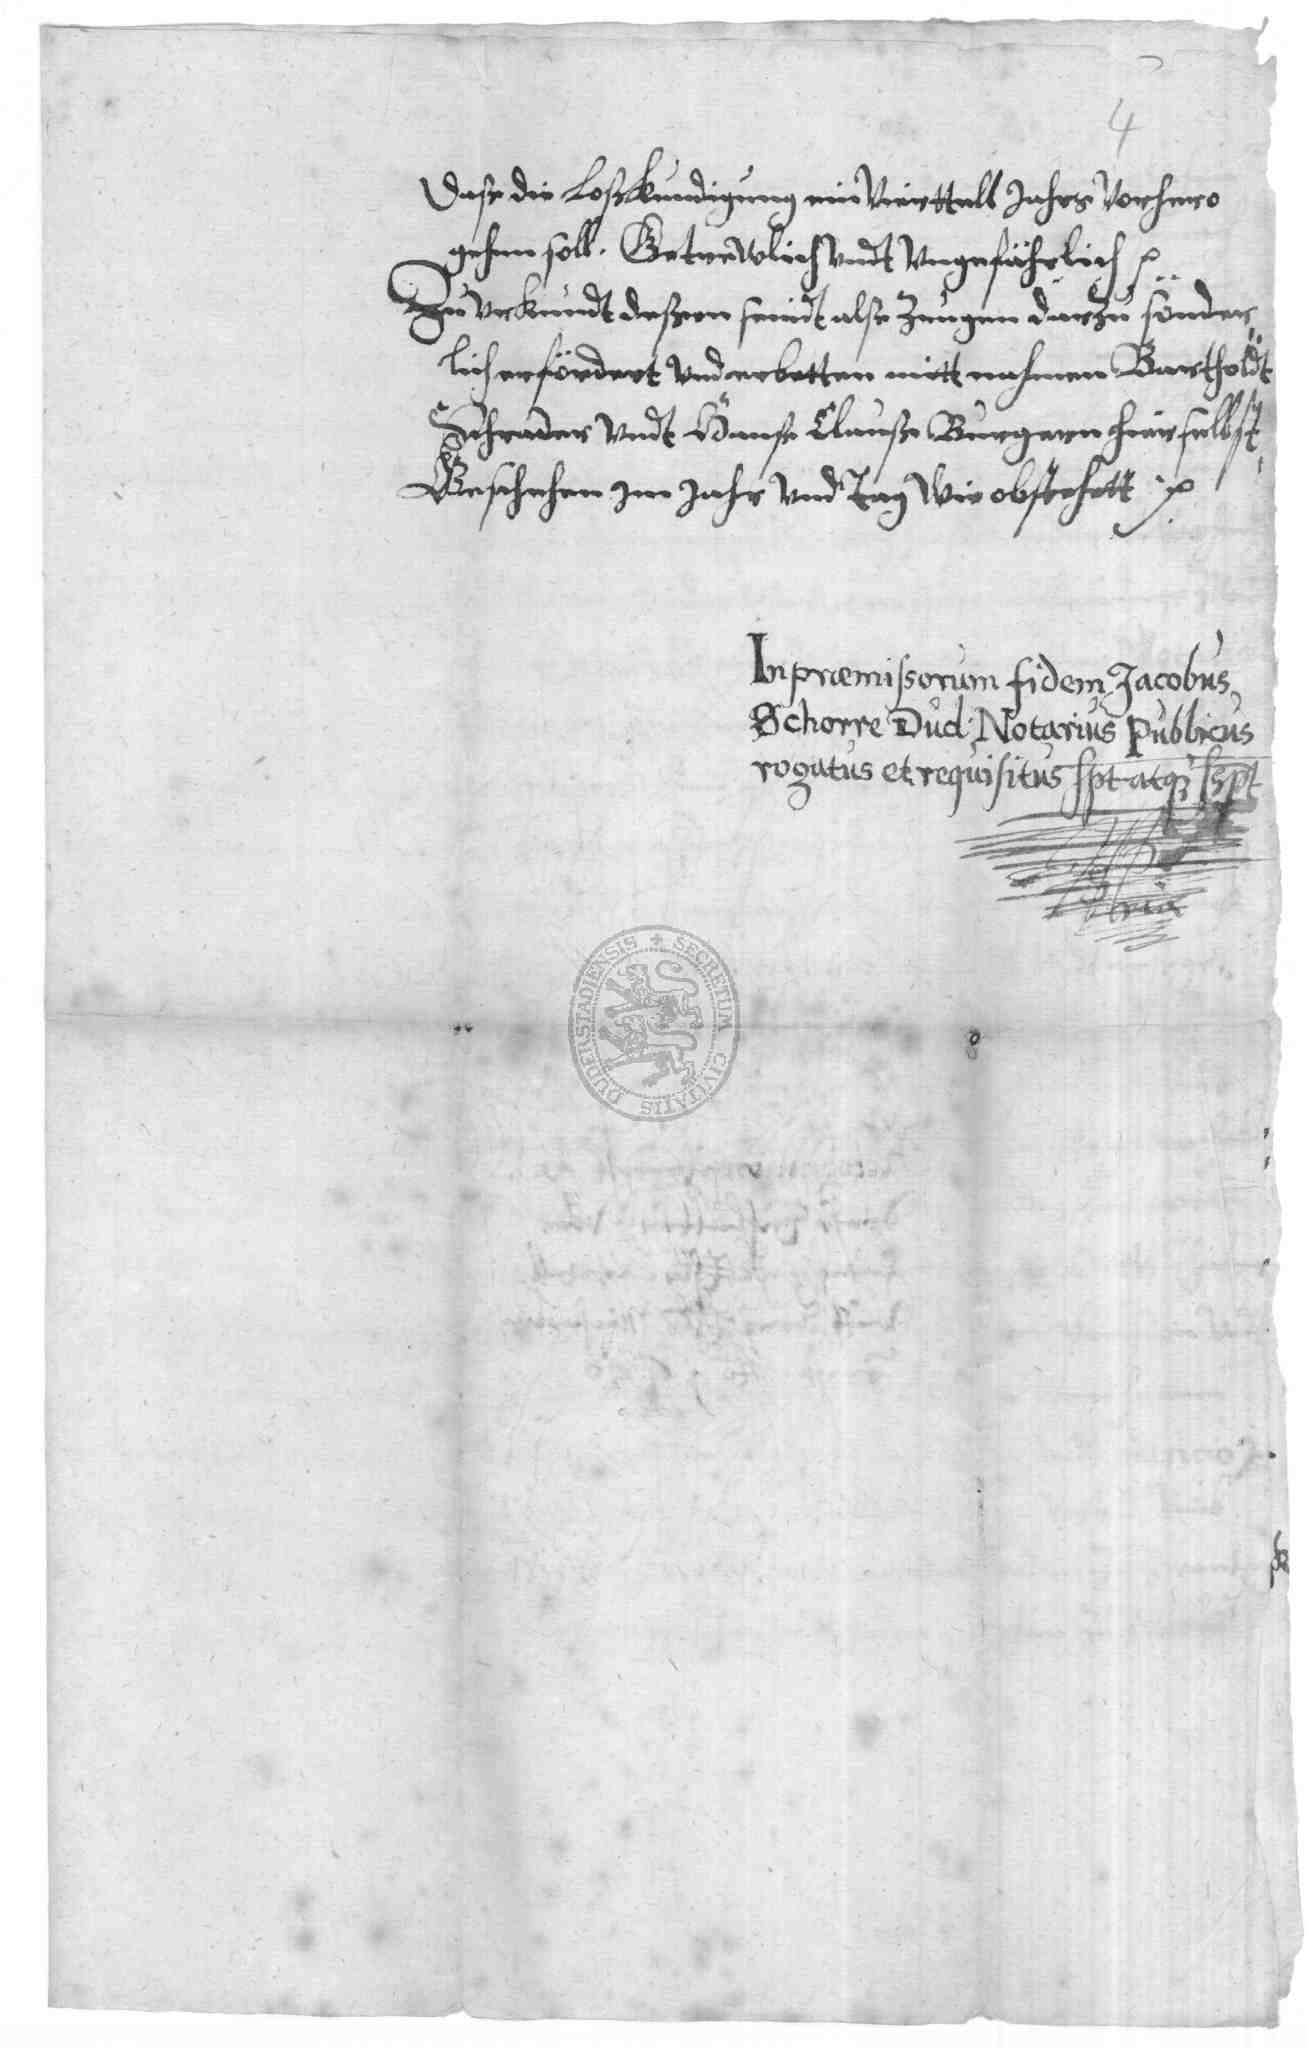 4
Dase die Loßkundigung ein Vierttell Jahrs Vorhero
gehen soll. Getrewlich vndt Vngefährlich
Zu Vrkundt deßen seindt alse Zeugen darzu sonder,
lich erfördert vnd erbetten mitt nahmen Bartholdt
Schrader vndt Hanse Clauße Burgern hierselbst
Geschehen im Jahr vnd tag wie obstehett
In præmissorum fidem Jacobus
Schorre Dud: Notarius Publicus
rogatus et requisitus spt atq sspt
SECRETUM CIVITATIS DUDERSTADIENSIS